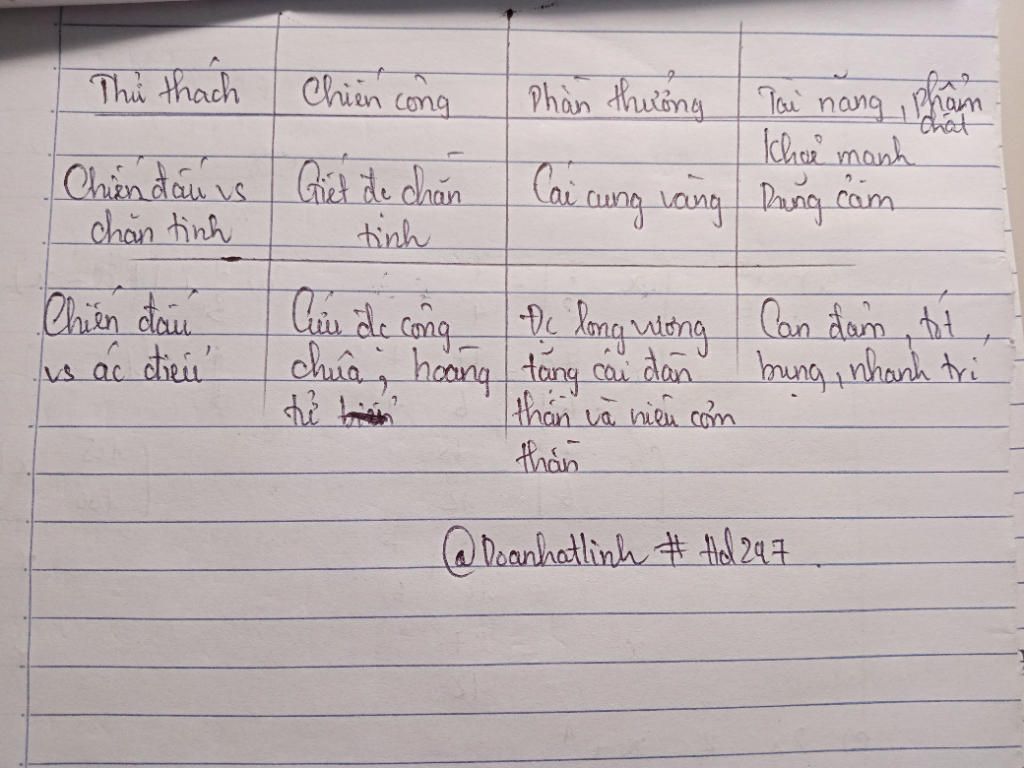 Thử thách
Chiến công
Phần thưởng
Tài năng, phẩm
chất
Chiến đấu vs
chăn tinh
Giết đc chăn
tinh
Cái cung vàng
Khoẻ mạnh
Dũng cảm
Chiến đấu
vs ác điểu
Cứu đc công
chuá, hoàng
tử
Đc long vương
tặng cái đàn
thần và niêu cơm
thần
Can đảm, tốt
bụng, nhanh trí
@Doanhatlinh # Hd247